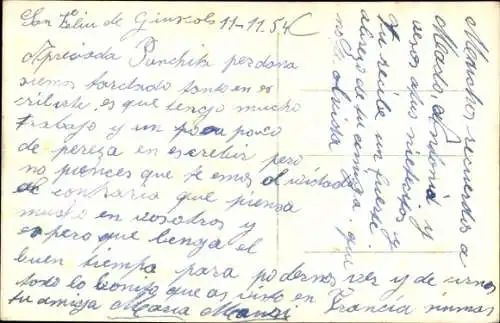 San Feliu de Guixols 11-11.54
Apreciada Panchita perdona
siemos tardado tanto en es
cribirte. es que tengo mucho
trabajo y un poca poco
de pereza en escribir pero
no pienses que te emos olvidado
al contrario que piensa
mucho en vosotros y
espero que benga el
buen tiempa para podernos ver y de irnos
todo lo bonito que as visto en Francia
tu amiga Maria
Munchos recuerdos a
Mado, a mémé y
besos a tus nietos y
tu recibe un fuerte
abrazo de tu amiga que
no te olvida